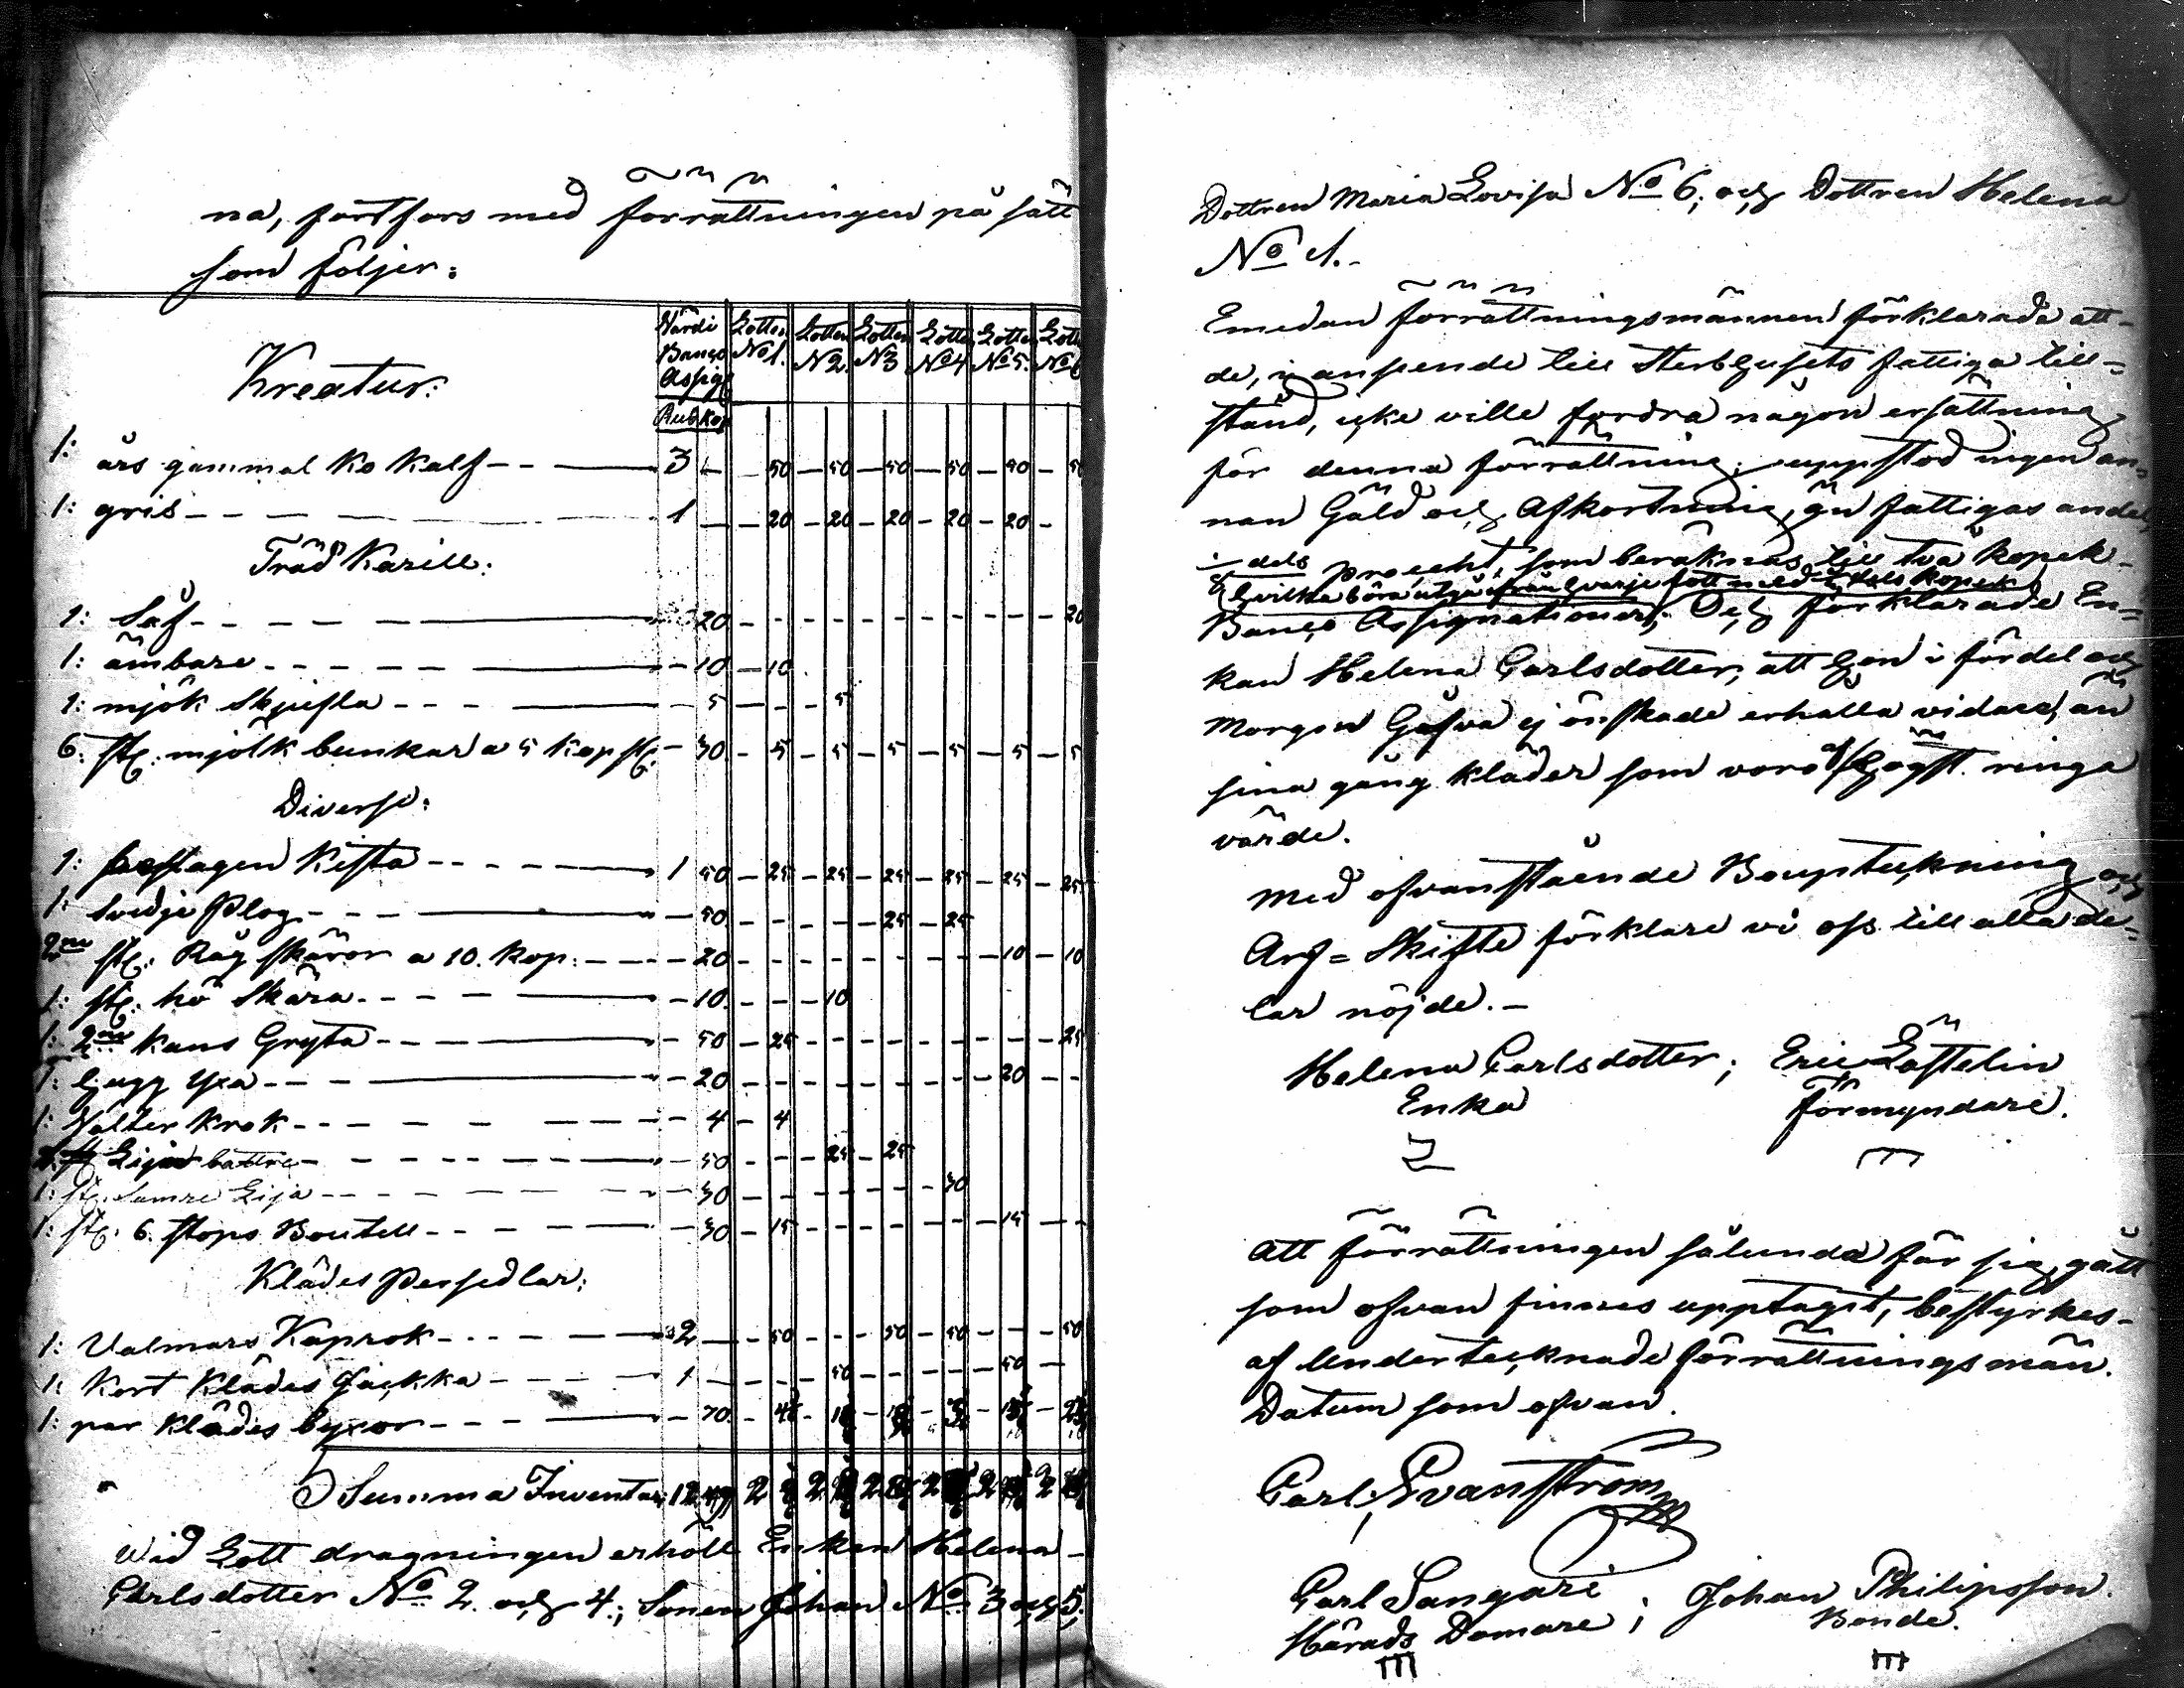 na, fortfors med förrättningen på sätt
som följer:
Kreatur:
Värde Banco Assig Rub kop
Lotten No 1. Lotten N 2. Lotten N 3 Lotten No 4 Lotten No 5. Lotten No 6
1: års gammal Ko Kalf 3 — 50 — 50 — 50 — 50 — 50 — 50
1: gris 1 — 20 — 20 — 20 — 20 — 20 —
Träd Karill:
1: Så 20 20
1: ämbare 10 — 10
1: mjök Skjufla 5 5
6. st: mjölk bunkar a 5 kop st: 30 — 5 — 5 — 5 — 5 — 5 — 5
Diverse:
1: Kista 1 50 — 25 — 25 — 25 — 25 — 25 — 25
1: Svedje Plog 50 25 — 25
2ne st: Råg skäror a 10. kop: 20 10 — 10
1: st: hö Skära 10 10
1: 2ne kans Gryta 50 — 25 25
1: hugg yxa 20 20
1: Valter krok 4 — 4
Lijor bättre 50 25 — 25
1: st: Samre Lija 30 30
1: st: 6. stops Boutell 30 — 15 15
Klädes Persedlar:
1: Valmars Kaprok 2 — 50 50 — 50 50
1: Kort Klädes Jackka 1 50 50
1: par Klädes byxor 70.
Summa Inventar 12 49 2 2 2 2 2 2
Wid Lott dragningen erhöll Enkan Helena
Carlsdotter No 2. och 4.; Sonen Johan No 3 och 5.;
Dottren Maria Lovisa No 6; och Dottren Helena
No 1.-
Emedan förrättningsmännen förklarade att
de, i anseende till Sterbhusets fattiga till=
stånd, icke ville fordra någon ersättning
för denna förrättning; uppstod ingen an=
nan Gäld och Afkortning, än fattigas andel
1/8 dels procent, som beräknas till två kopek
hvilka böra utgå ifrån hvarje lott med dels kopek
Banco Assignationer; Och förklarade En=
kan Helena Carlsdotter, att hon i fördel och
Morgon Gåfva ej önskade erhålla vidare, än
sina gång kläder som voro af högst. ringa
värde.
Med ofvanstående Bouptekning och
Arf= Skifte förklare vi oss till alla de=
lar nöjde.-
Helena Carlsdotter; Eric Läftelin
Enka Förmyndare.
Att förrättningen sålunda för sig gått
som ofvan finnes upptagit, bestyrkes
af Undertecknade förrättningsmän.
Datum som ofvan.
Carl, Svanström
Carl Sangari ; Johan Philipsson.
Härads Domare Bonde.